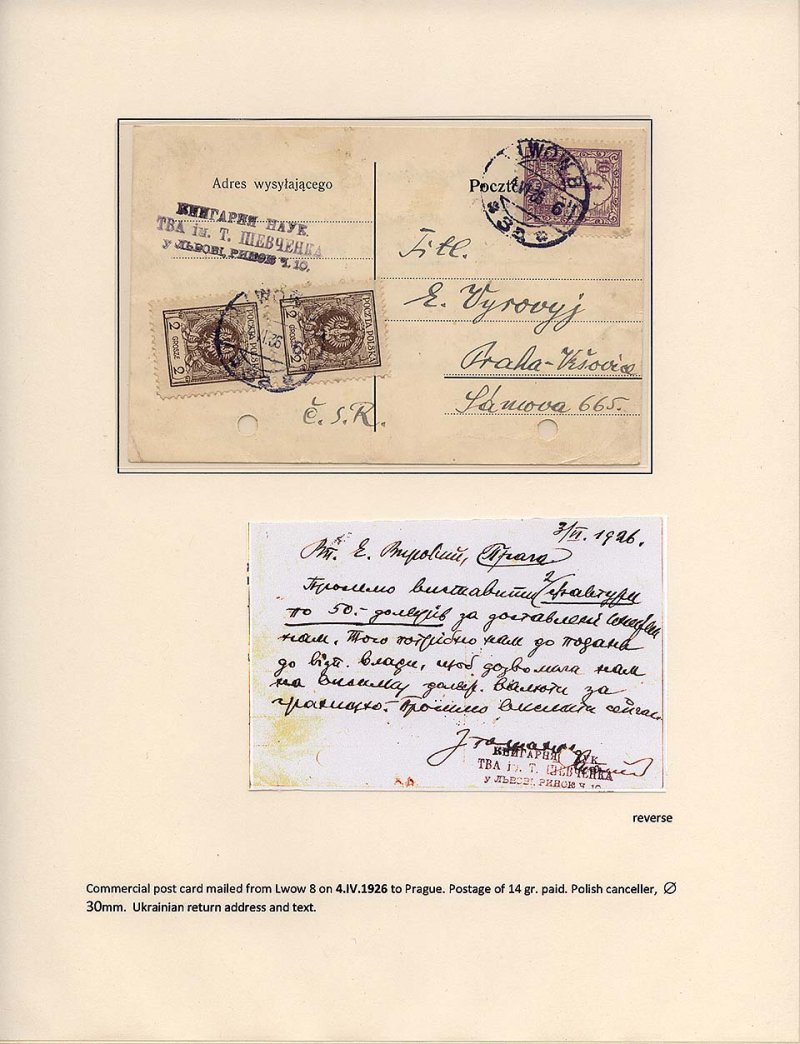 Adres wysyłającego
КНИГАРНЯ НАУК.
ТВА ім. Т. ШЕВЧЕНКА
у ЛЬВОВІ, РИНОК Ч. 10.
LWÓW 8
10
Titl.
E. Vyrovyj
Praha-Vršovice
Sámova 665.
LWÓW
2 GROSZE POCZTA POLSKA
2 GROSZE
Č. S. R.
1926.
Вп. Е. Вировий, Прага
Просимо виставити 2 фактури
по 50.- долярів за доставлені
нам. Того потрібно нам до подана
до відп. влади, щоб дозволила нам
на висилку доляр. валюти за
границю. Просимо вислати
КНИГАРНЯ НАУК.
ТВА ім. Т. ШЕВЧЕНКА
у ЛЬВОВІ, РИНОК Ч. 10
reverse
Commercial post card mailed from Lwow 8 on 4.IV.1926 to Prague. Postage of 14 gr. paid. Polish canceller, ∅
30mm. Ukrainian return address and text.